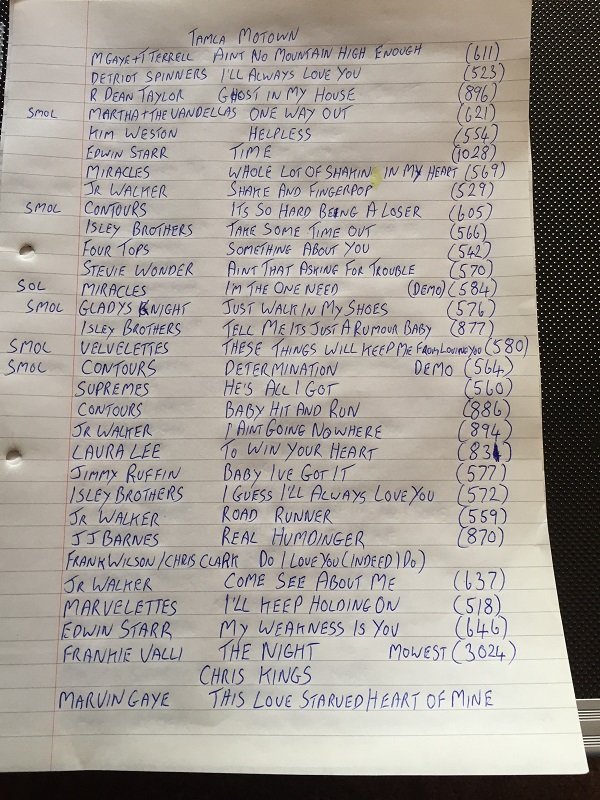 TAMLA MOTOWN
M GAYE + T TERRELL AINT NO MOUNTAIN HIGH ENOUGH (611)
DETRIOT SPINNERS I'LL ALWAYS LOVE YOU (523)
R DEAN TAYLOR GHOST IN MY HOUSE (896)
SMOL MARTHA + THE VANDELLAS ONE WAY OUT (621)
KIM WESTON HELPLESS (554)
EDWIN STARR TIME (1028)
MIRACLES WHOLE LOT OF SHAKIN IN MY HEART (569)
JR WALKER SHAKE AND FINGERPOP (529)
SMOL CONTOURS ITS SO HARD BEING A LOSER (605)
ISLEY BROTHERS TAKE SOME TIME OUT (566)
FOUR TOPS SOMETHING ABOUT YOU (542)
STEVIE WONDER AINT THAT ASKING FOR TROUBLE (570)
SOL MIRACLES I'M THE ONE NEED (DEMO) (584)
SMOL GLADYS KNIGHT JUST WALK IN MY SHOES (576)
ISLEY BROTHERS TELL ME ITS JUST A RUMOUR BABY (877)
SMOL VELVELETTES THESE THINGS WILL KEEP ME FROM LOVING YOU (580)
SMOL CONTOURS DETERMINATION DEMO (564)
SUPREMES HE'S ALL I GOT (560)
CONTOURS BABY HIT AND RUN (886)
JR WALKER I AINT GOING NOWHERE (894)
LAURA LEE TO WIN YOUR HEART (831)
JIMMY RUFFIN BABY I'VE GOT IT (577)
ISLEY BROTHERS I GUESS I'LL ALWAYS LOVE YOU (572)
JR WALKER ROAD RUNNER (559)
JJ BARNES REAL HUMDINGER (870)
FRANK WILSON / CHRIS CLARK DO I LOVE YOU (INDEED I DO)
JR WALKER COME SEE ABOUT ME (637)
MARVELETTES I'LL KEEP HOLDING ON (518)
EDWIN STARR MY WEAKNESS IS YOU (646)
FRANKIE VALLI THE NIGHT MOWEST (3024)
CHRIS KINGS
MARVIN GAYE THIS LOVE STARVED HEART OF MINE